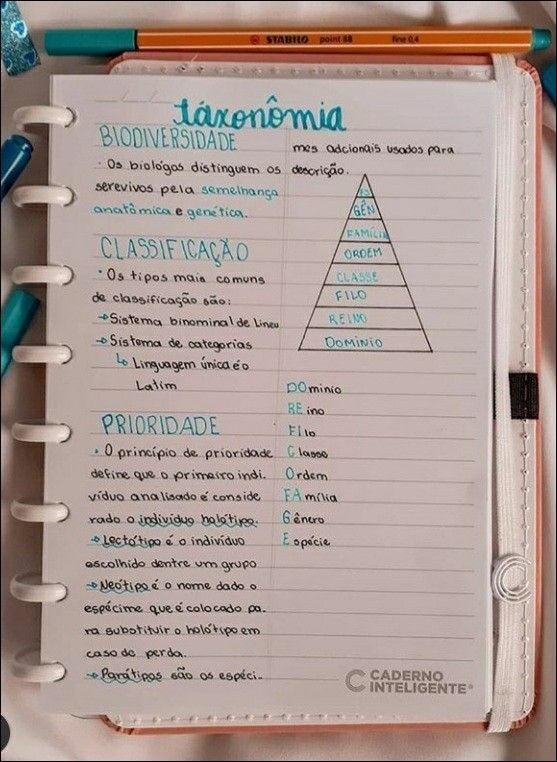 STABILO point 88 fine 0,4
táxonômia
BIODIVERSIDADE
· Os biológos distinguem os
serevivos pela semelhança
anatômica e genética.
CLASSIFICAÇÃO
· Os tipos mais comuns
de classificação são:
→ Sistema binominal de Lineu
→ Sistema de categorias
↳ Linguagem única é o
Latim
PRIORIDADE
· O princípio de prioridade
define que o primeiro indi-
víduo analisado é conside
rado o indivíduo holótipo.
→ Lectótipo é o indivíduo
escolhido dentre um grupo
→ Neótipo é o nome dado o
espécime que é colocado pa-
ra substituir o holótipo em
caso de perda.
→ Parátipos são os espéci-
mes adcionais usados para
descrição.
ES
GÊN
FAMÍLIA
ORDEM
CLASSE
FILO
REINO
DOMÍNIO
DOminio
REino
FIlo
Classe
Ordem
FAmília
Gênero
Espécie
CADERNO
INTELIGENTE®